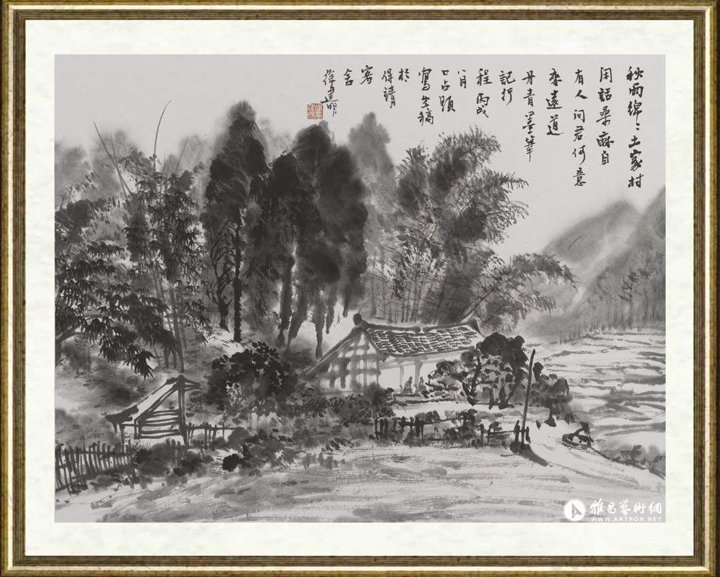 秋雨绵々土家村
闲话桑麻自
有人问君何意
来远道
丹青墨笔
记行
程丙戌
八月
口占顺
写生稿
於
得清
客
舍
徐建明
雅昌藝術網
WWW.ARTRON.NET